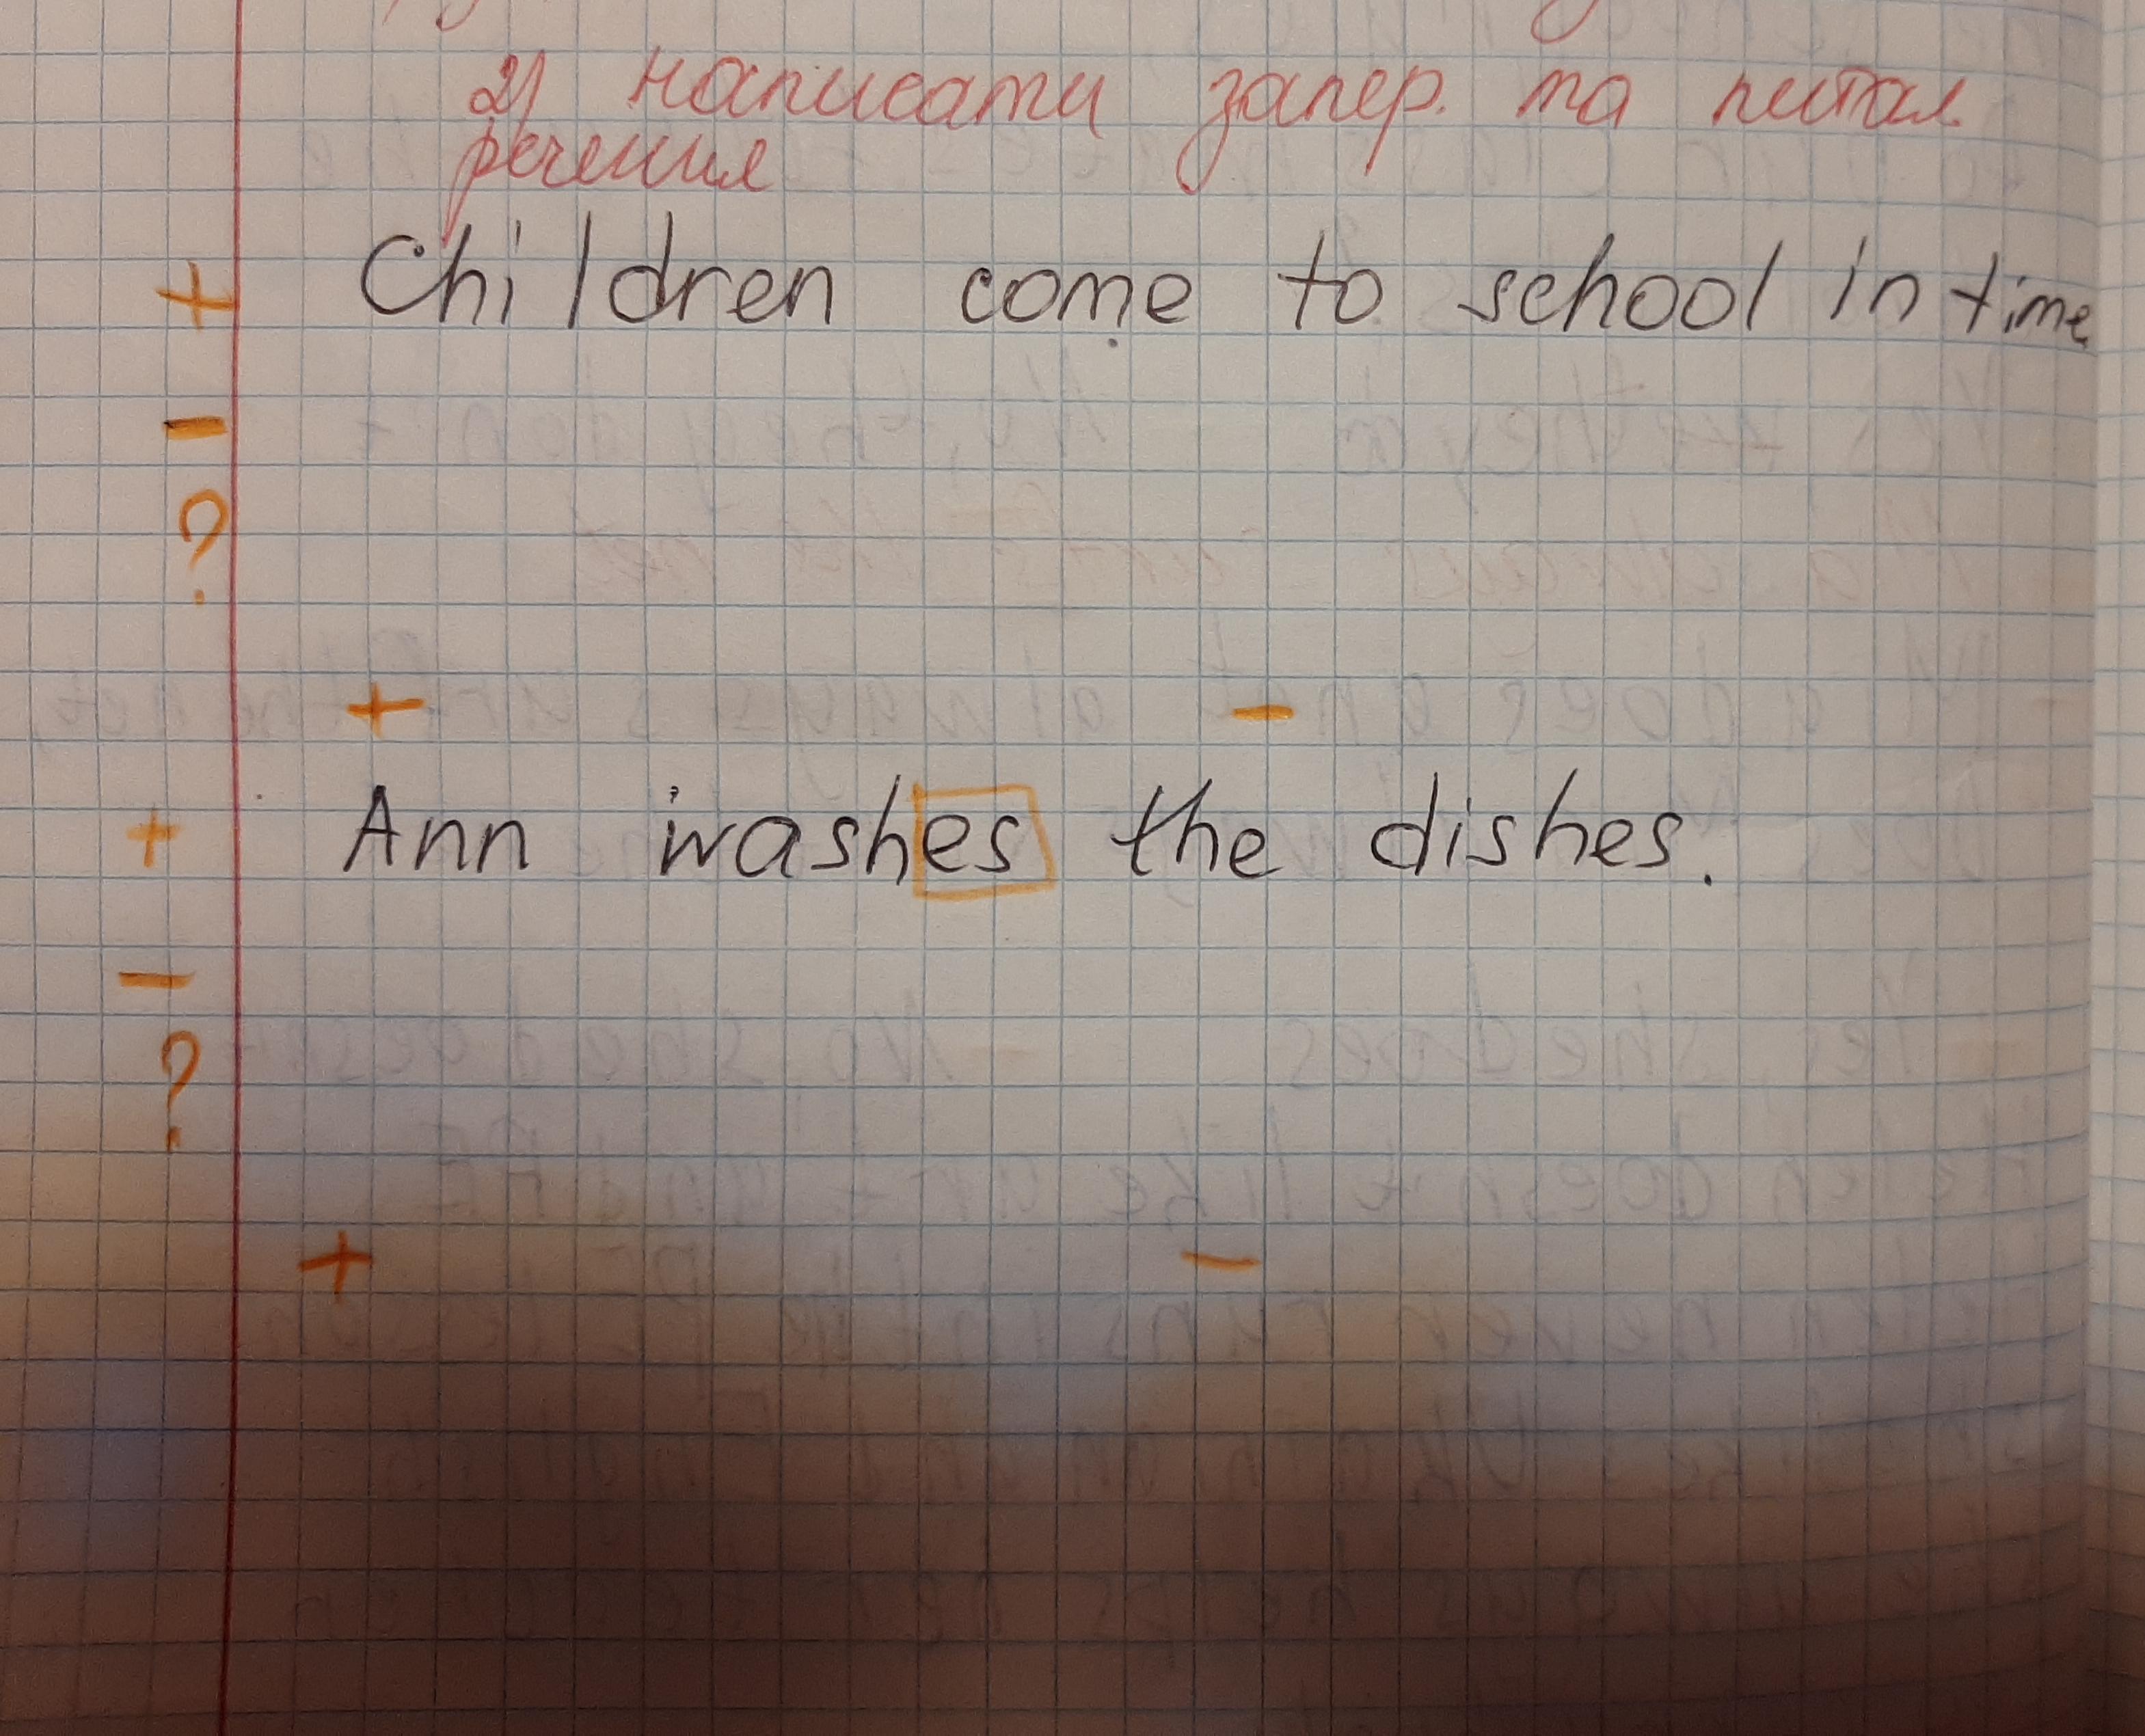 2) написати запер. та питал.
речення
+ Children come to school in time
-
?
+ -
+ Ann washes the dishes.
-
?
+ -